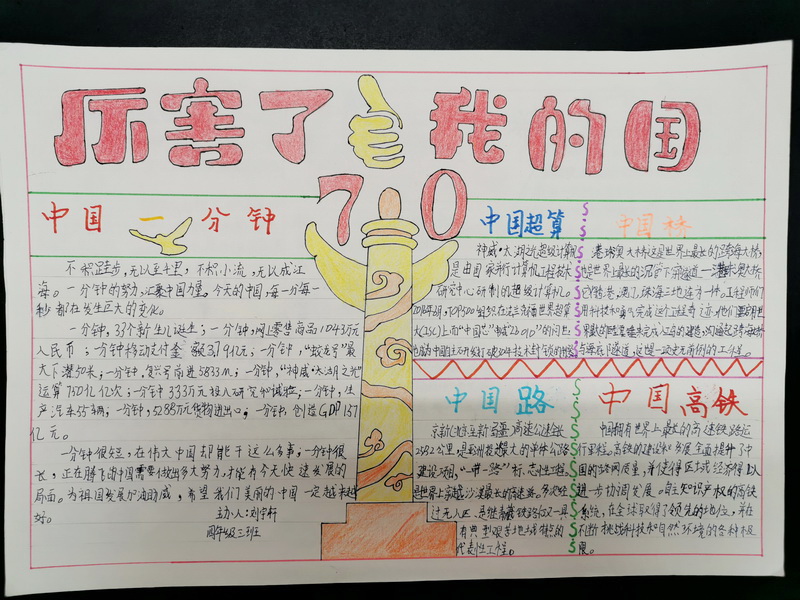 厉害了 我的国
70
中国一分钟
不积跬步，无以至千里，不积小流，无以成江
海。一分钟的努力，汇聚中国力量。今天的中国，每一分每一
秒都在发生巨大的变化。
一分钟，33个新生儿诞生；一分钟，网上零售商品1043万
人民币；一分钟移动支付金额3.79亿元；一分钟，“蛟龙号”最
大下潜50米；一分钟，复兴号前进5833m；一分钟，“神威·太湖之光”
运算750亿亿次；一分钟333万元投入研究和试验；一分钟，生
产汽车55辆；一分钟，5288万货物进出口；一分钟，创造GDP1.57
亿元。
一分钟很短，在伟大中国却能干这么多事；一分钟很
长，正在腾飞的中国需要付出多大努力，才能有今天快速发展的
局面。为祖国发展加油助威，希望我们美丽的中国一定越来越
好。
主办人：刘宇轩
四年级三班
中国超算
神威·太湖之光超级计算机
是由国家并行计算机工程技术
研究中心研制的超级计算机。
中国桥
港珠澳大桥这是世界上最长的跨海大桥，
也是世界上最长的沉管下隧道——港珠澳大桥
已将香港，澳门，珠海三地连为一体。工程师们
中国路
京新(北京至新疆)高速公路长
2582公里，是亚洲投资最大的单体公路
建设项目，“一带一路”标志性工程
是世界上穿越沙漠最长的高速路。多次经
过无人区，是继青藏铁路后又一具
有典型艰苦地域特点的
代表性工程。
中国高铁
中国拥有世界上最长的高速铁路运
行里程。高铁的建设和发展全面提升了中
国的路网质量，并使得区域经济得以
进一步协调发展。自主知识产权的高铁
系统，在全球取得了领先的地位，并在
不断挑战科技和自然环境的各种极
限。